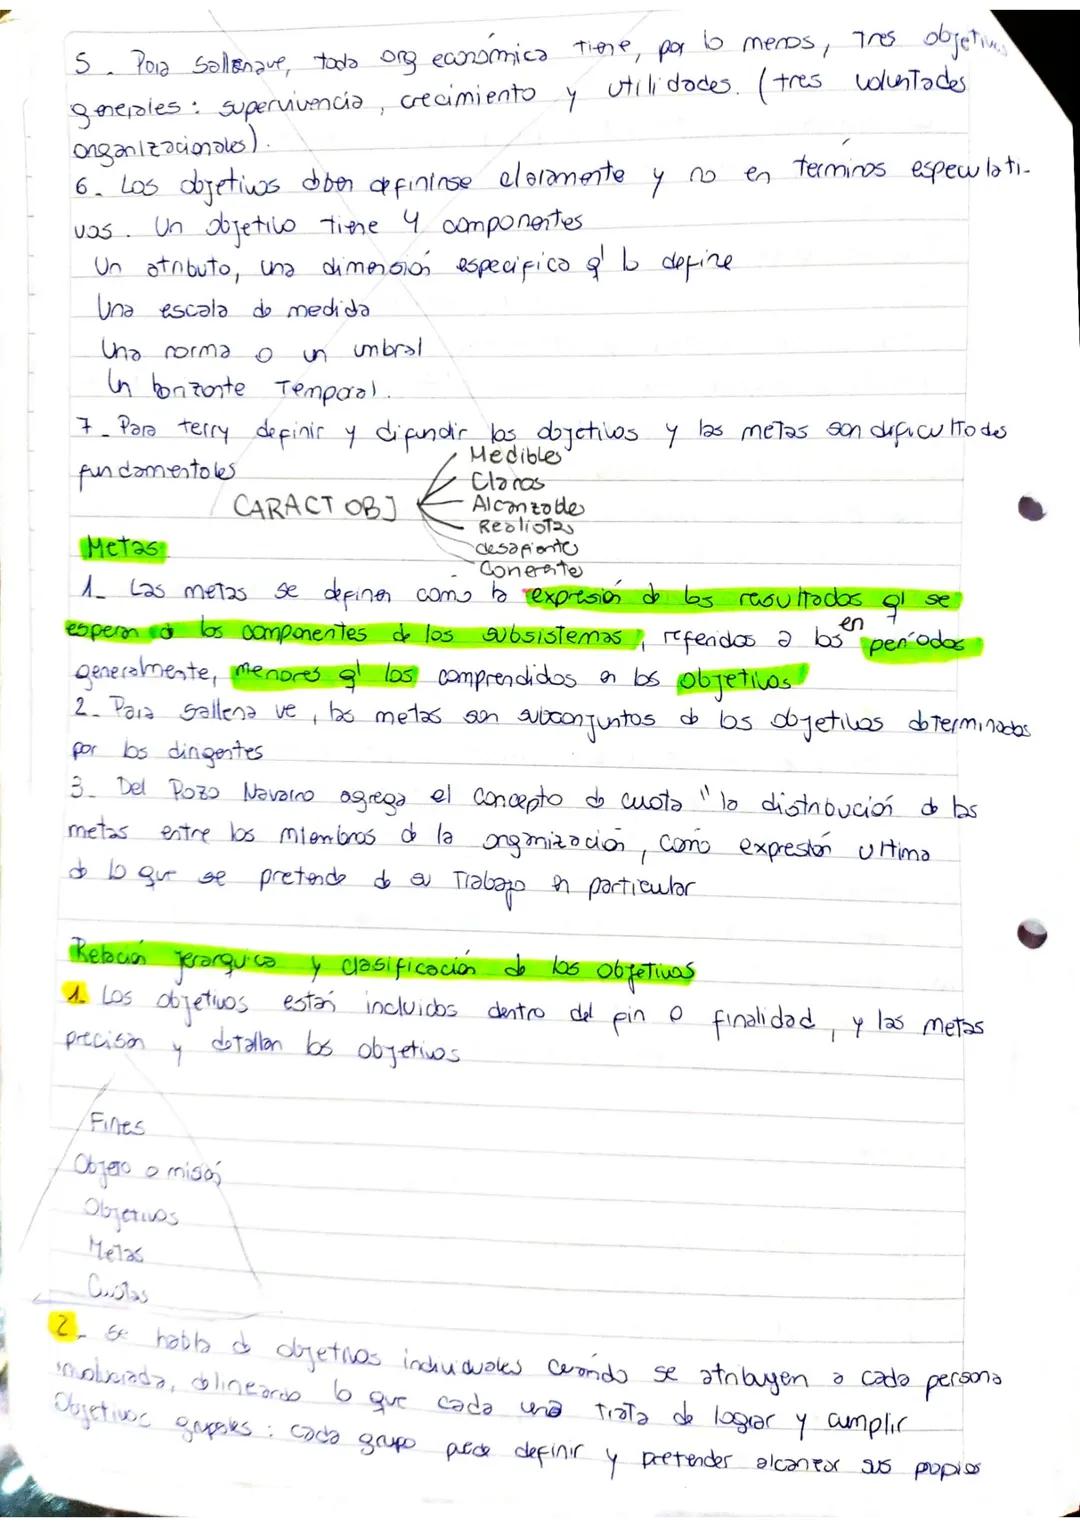 5. Para Sallenave, toda org económica tiene, por lo menos, Tres objetivos
generales: supervivencia, crecimiento y utilidades. (tres voluntades
organizacionales).
6. Los objetivos dben definirse claramente y no en terminos especulati-
vos. Un objetivo tiene 4 componentes
Un atributo, una dimensión especifica q' lo define
Una escala de medida
Una norma o un umbral
Un horizonte Temporal.
7. Para terry definir y difundir los objetivos y las metas son dificultades
fundamentales
CARACT OBJ
Medibles
Claros
Alcanzables
Realistas
desafiante
Conerente
Metas:
1. Las metas se definen como la expresión de los resultados q' se
esperan d los componentes de los subsistemas, referidos a los en periodos
generalmente, menores q' los comprendidos en los objetivos
2. Para Sallena ve, las metas son subconjuntos de los objetivos determinados
por los dirigentes
3. Del Pozo Navarro agrega el concepto de cuota "la distribución de las
metas entre los miembros de la organización, como expresión ultima
de lo que se pretende de su Trabajo en particular
Relación jerarquica y clasificación de los objetivos
1. Los objetivos están incluidos dentro del fin o finalidad, y las metas
precisan y detallan los objetivos
Fines
Objeto o misión
Objetivos
Metas
Cuotas
2. Se habla de objetivos individuales cuando se atribuyen a cada persona
involucrada, delineando lo que cada una trata de lograr y cumplir
Objetivos grupales: cada grupo puede definir y pretender alcanzar sus propios